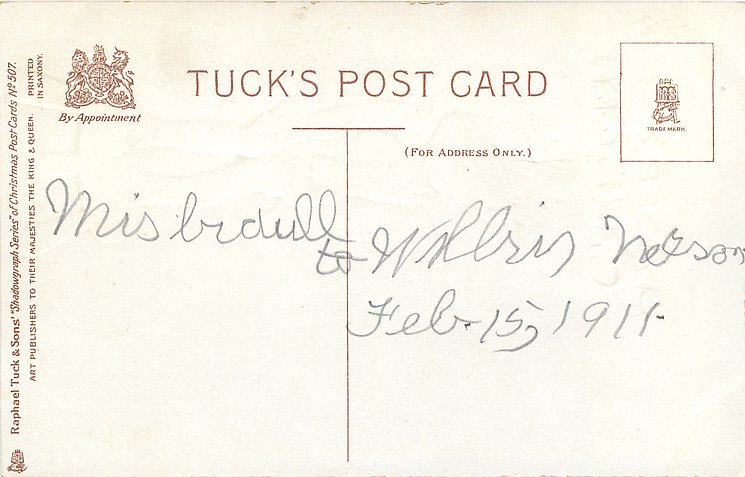 TUCK'S POST CARD
By Appointment
(FOR ADDRESS ONLY.)
TRADE MARK.
Raphael Tuck & Sons' "Shadowgraph Series" of Christmas Post Cards Nº 507.
ART PUBLISHERS TO THEIR MAJESTIES THE KING & QUEEN.
PRINTED
IN SAXONY.
Mis
to Nelson
Feb. 15, 1911